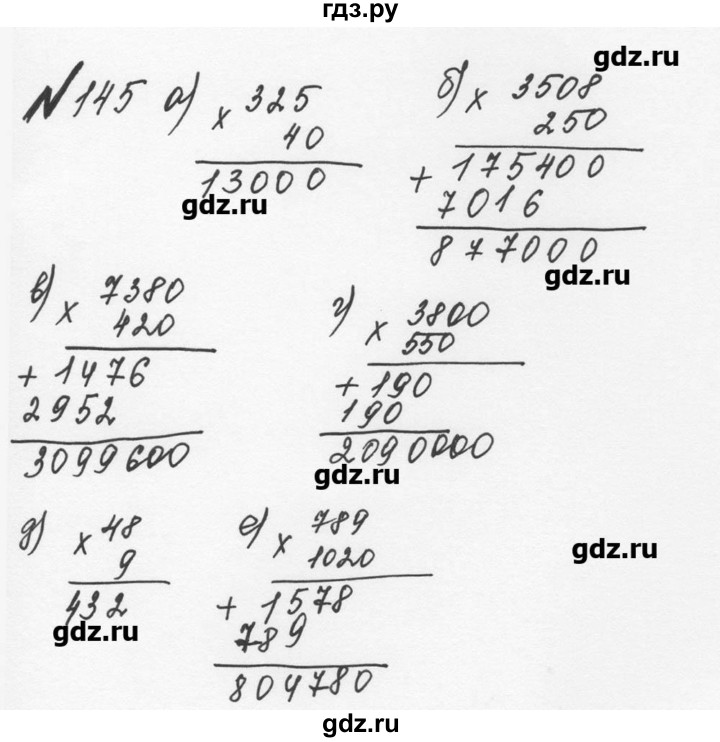 гдз.ру
gdz.ru
№145 а) × 325
40
13000
gdz.ru
б) × 3508
250
+ 175400
7016
877000
gdz.ru
в) × 7380
420
+ 1476
2952
3099600
г) × 3800
550
+ 190
190
2090000
gdz.ru
д) × 48
9
432
gdz.ru
е) × 789
1020
+ 1578
789
804780
gdz.ru
gdz.ru